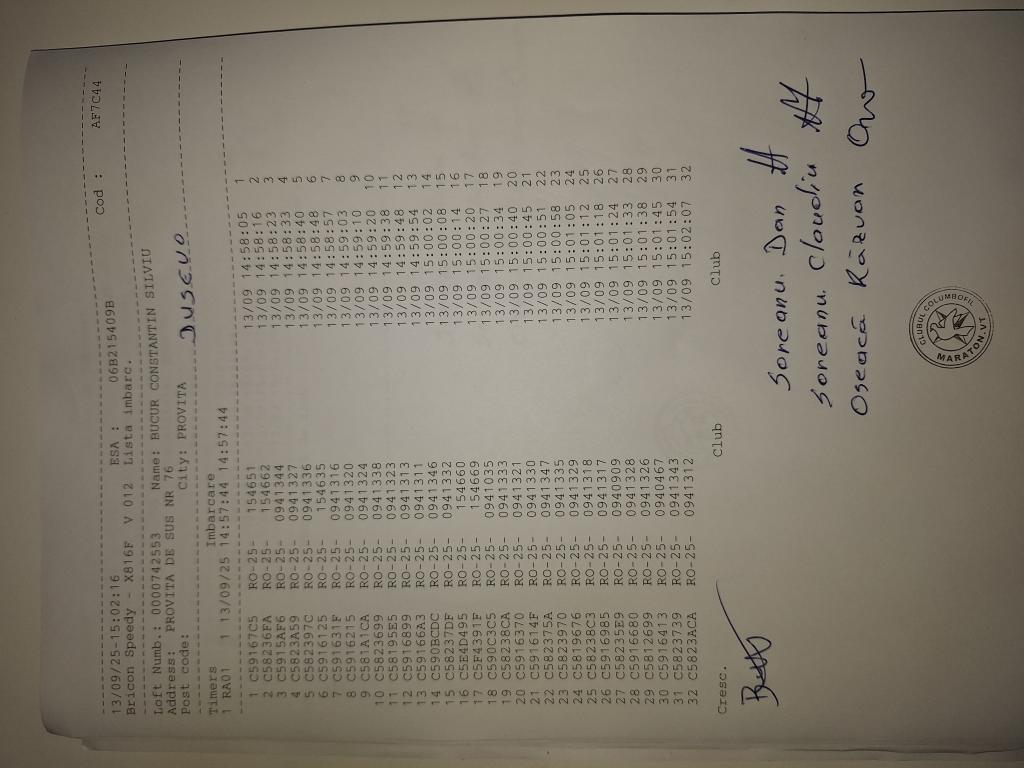 13/09/25-15:02:16 ESA : 06B215409B Cod : AF7C44
Bricon Speedy - X816F V 012 Lista imbarc.
Loft Numb.: 0000742553 Name: BUCUR CONSTANTIN SILVIU
Address: PROVITA DE SUS NR 76
Post code: City: PROVITA DUSEVO
Timers Imbarcare
1 RA01 1 13/09/25 14:57:44 14:57:44
1 C59167C5 RO-25- 154651 13/09 14:58:05 1
2 C58236FA RO-25- 154662 13/09 14:58:16 2
3 C5915AF6 RO-25- 0941344 13/09 14:58:23 3
4 C5823A59 RO-25- 0941327 13/09 14:58:33 4
5 C582397C RO-25- 0941336 13/09 14:58:40 5
6 C5916125 RO-25- 154635 13/09 14:58:48 6
7 C591631F RO-25- 0941316 13/09 14:58:57 7
8 C5916215 RO-25- 0941320 13/09 14:59:03 8
9 C581A1CA RO-25- 0941324 13/09 14:59:10 9
10 C5823699 RO-25- 0941338 13/09 14:59:20 10
11 C58195E5 RO-25- 0941323 13/09 14:59:38 11
12 C59168B9 RO-25- 0941313 13/09 14:59:48 12
13 C59166A3 RO-25- 0941311 13/09 14:59:54 13
14 C590BCDC RO-25- 0941346 13/09 15:00:02 14
15 C58237DF RO-25- 0941332 13/09 15:00:08 15
16 C5E4D495 RO-25- 154660 13/09 15:00:14 16
17 C5F4291F RO-25- 154669 13/09 15:00:20 17
18 C590C3C5 RO-25- 0941035 13/09 15:00:27 18
19 C58238CA RO-25- 0941333 13/09 15:00:34 19
20 C5916370 RO-25- 0941321 13/09 15:00:40 20
21 C591614F RO-25- 0941330 13/09 15:00:45 21
22 C582375A RO-25- 0941347 13/09 15:00:51 22
23 C5823970 RO-25- 0941335 13/09 15:00:58 23
24 C5819676 RO-25- 0941329 13/09 15:01:05 24
25 C58238C3 RO-25- 0941318 13/09 15:01:12 25
26 C5916985 RO-25- 0941317 13/09 15:01:18 26
27 C58235E9 RO-25- 0940909 13/09 15:01:24 27
28 C5916660 RO-25- 0941328 13/09 15:01:33 28
29 C5812699 RO-25- 0941326 13/09 15:01:38 29
30 C5916413 RO-25- 0940467 13/09 15:01:45 30
31 C5823739 RO-25- 0941343 13/09 15:01:54 31
32 C5823ACA RO-25- 0941312 13/09 15:02:07 32
Cresc. Club Club
Soreanu Dan
Soreanu Claudiu
Oseacă Răzvan
CLUBUL COLUMBOFIL
MARATON.VT